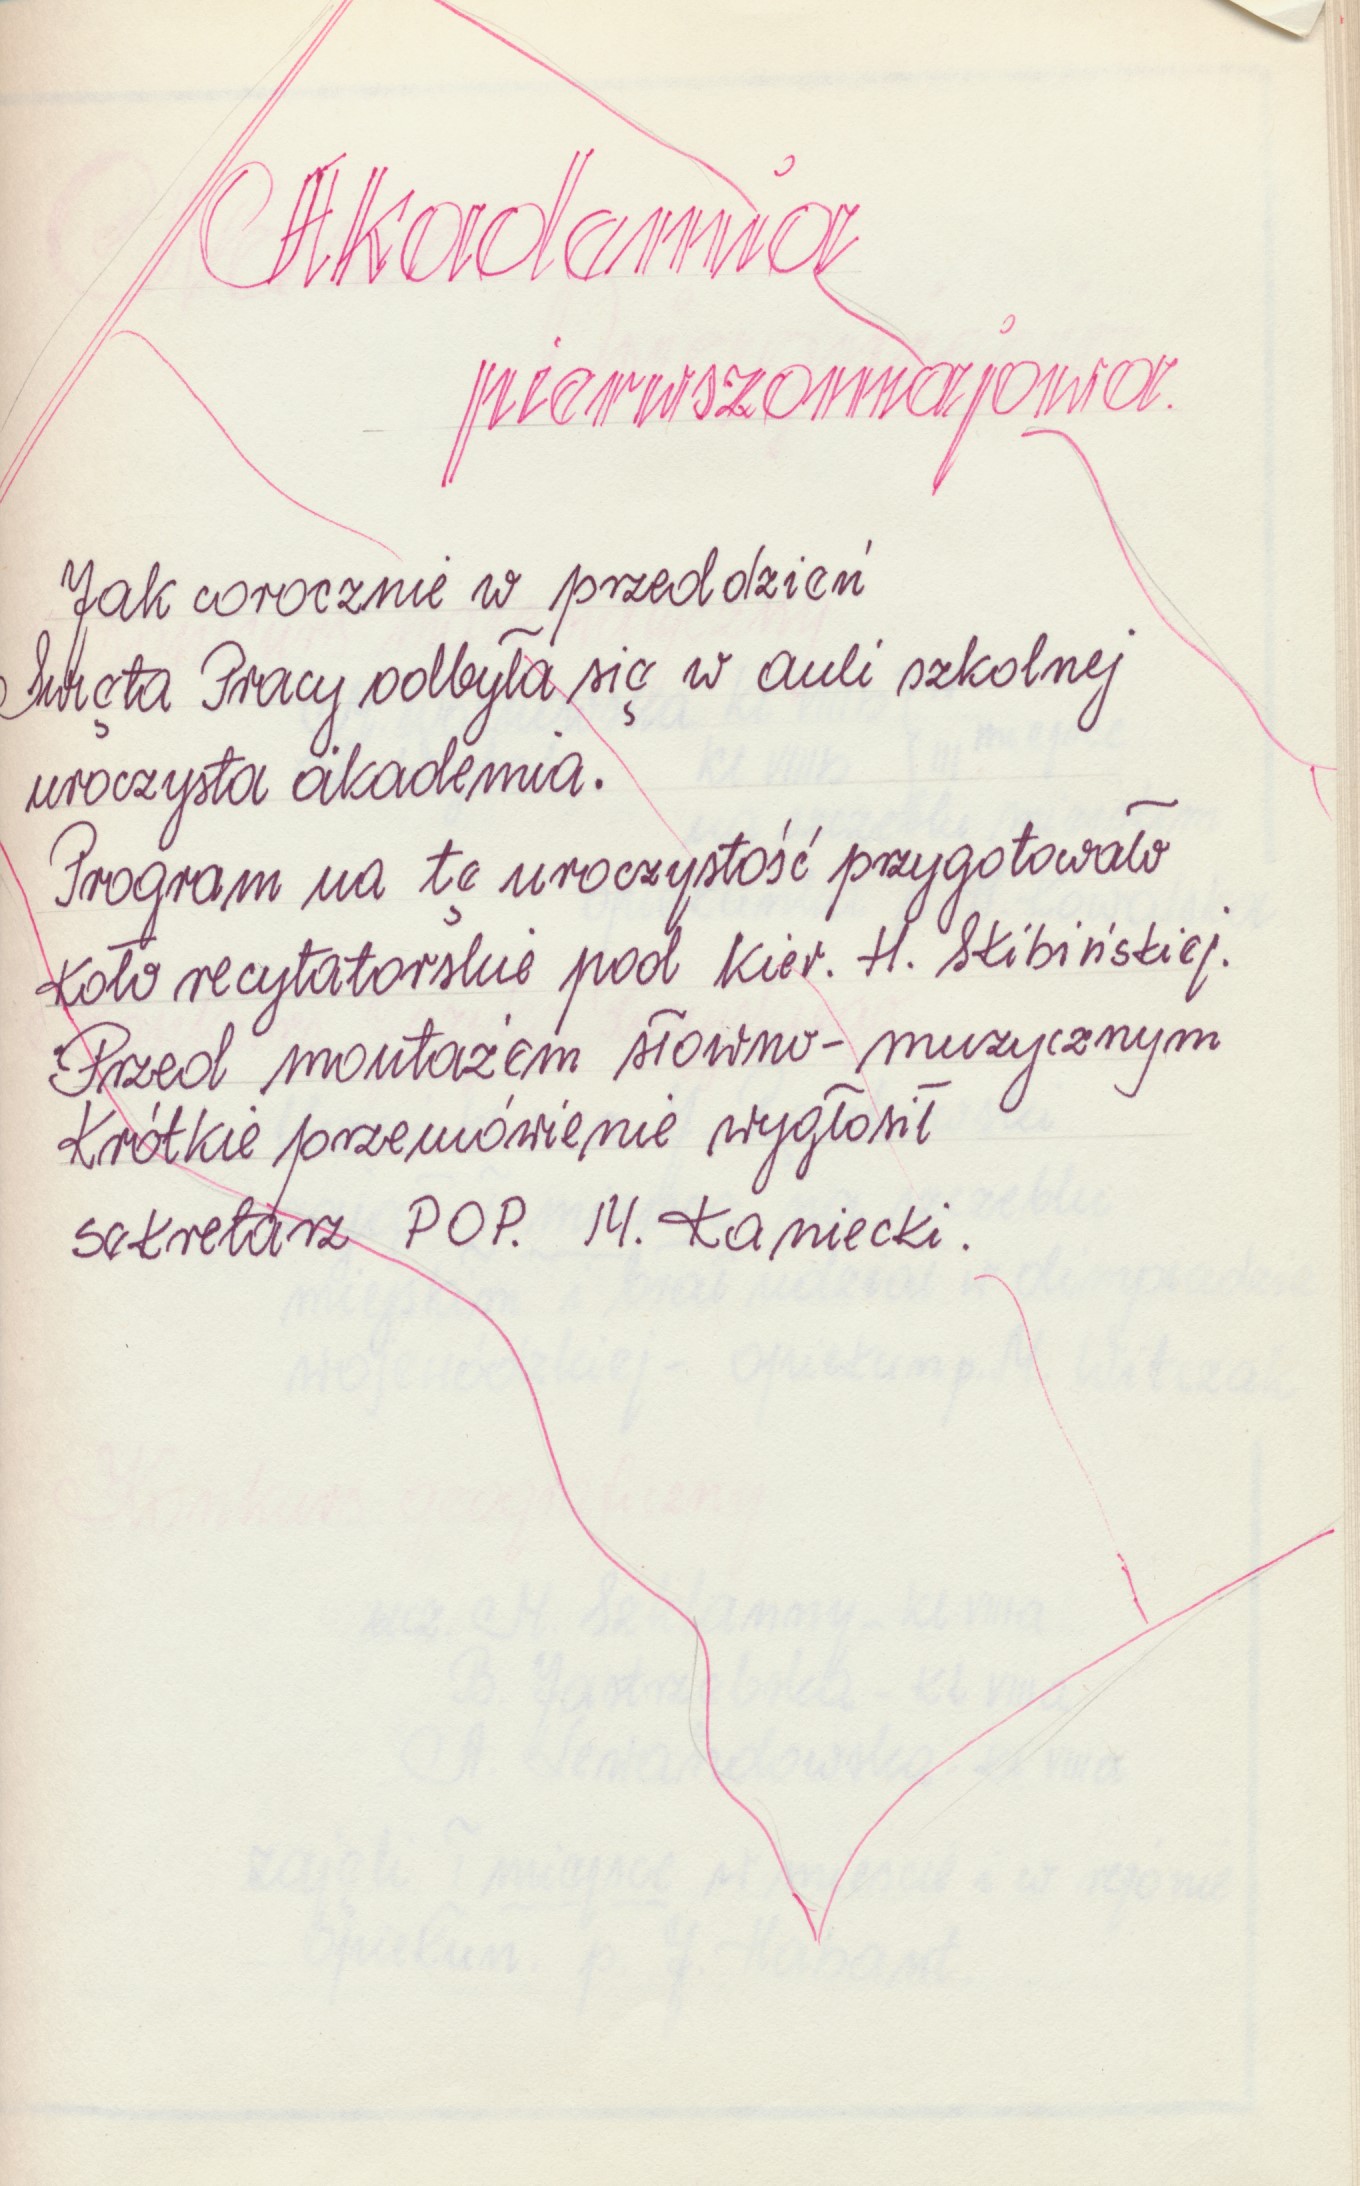 Akademia
pierwszomajowa.
Jak corocznie w przeddzień
Święta Pracy odbyła się w auli szkolnej
uroczysta akademia.
Program na tę uroczystość przygotowało
koło recytatorskie pod kier. H. Skibińskiej.
Przed montażem słowno-muzycznym
krótkie przemówienie wygłosił
sekretarz POP. M. Kaniecki.